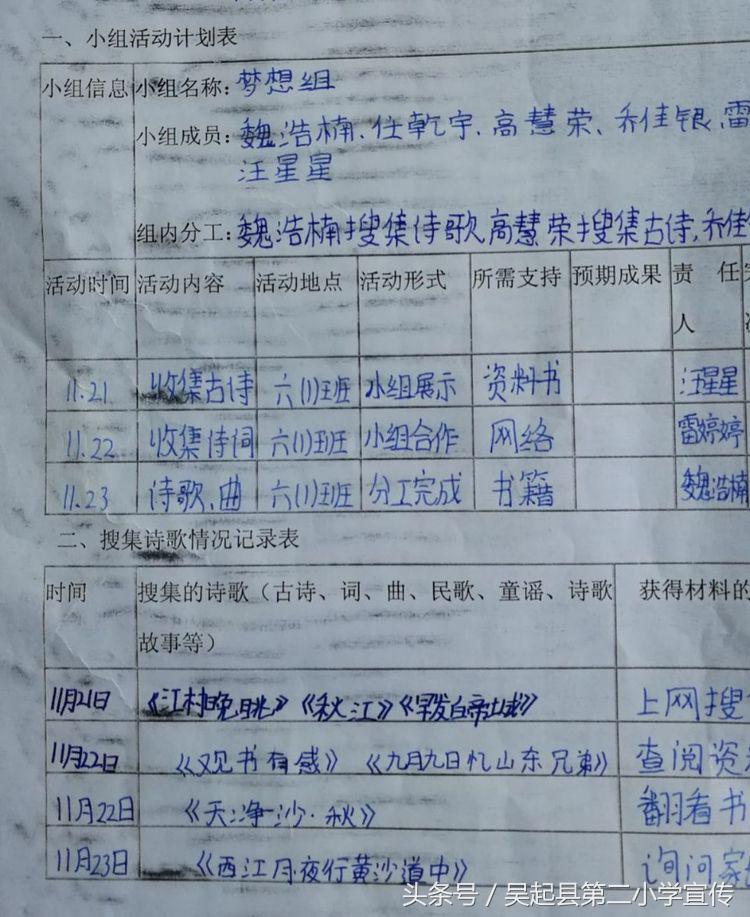 一、小组活动计划表
小组信息 小组名称：梦想组
小组成员：魏浩楠、任乾宇、高慧荣、乔佳银、雷
汪星星
组内分工：魏浩楠搜集诗歌，高慧荣搜集古诗，乔佳
活动时间 活动内容 活动地点 活动形式 所需支持 预期成果 责任
人
11.21 收集古诗 六(1)班 小组展示 资料书 汪星星
11.22 收集诗词 六(1)班 小组合作 网络 雷婷婷
11.23 诗歌、曲 六(1)班 分工完成 书籍 魏浩楠
二、搜集诗歌情况记录表
时间 搜集的诗歌（古诗、词、曲、民歌、童谣、诗歌 获得材料的
故事等）
11月21日 《江村晚眺》《秋江》《早发白帝城》 上网搜
11月22日 《观书有感》 《九月九日忆山东兄弟》 查阅资
11月22日 《天净沙·秋》 翻看书
11月23日 《西江月·夜行黄沙道中》 询问家
头条号／吴起县第二小学宣传